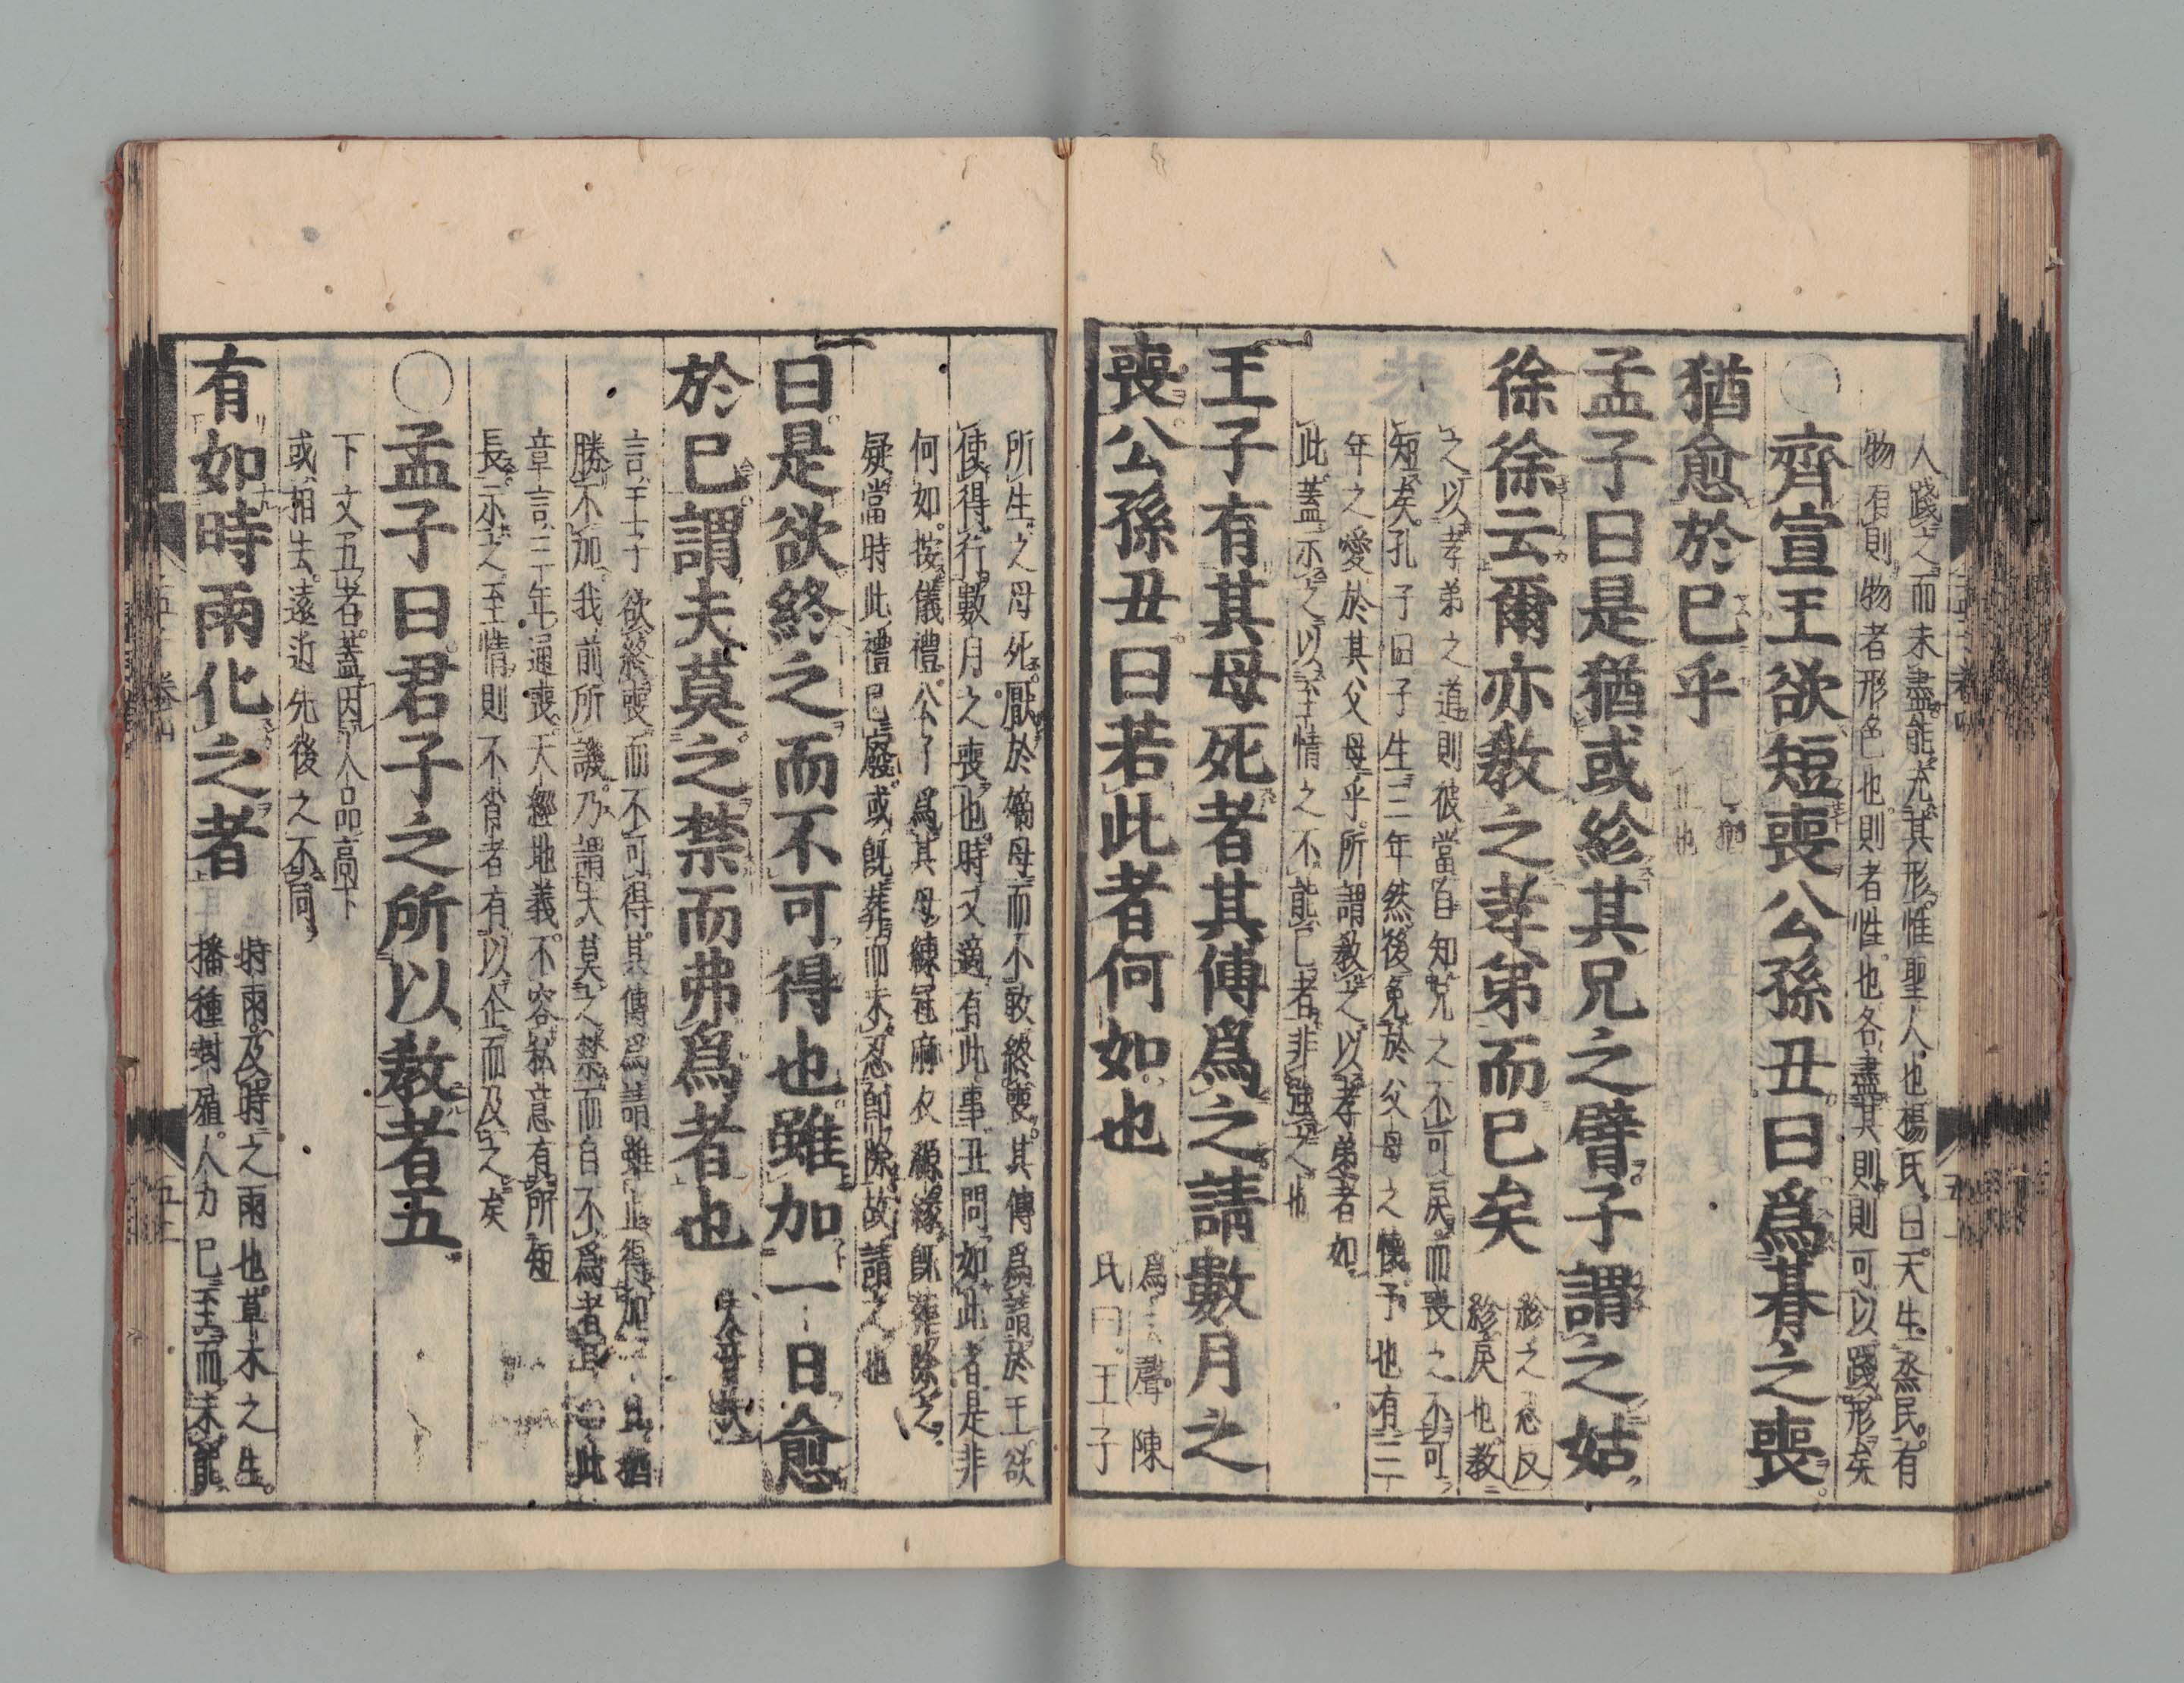 人踐之而未盡能充其形惟聖人也楊氏曰天生烝民有
物有則物者形色也則者性也各盡其則則可以踐形矣
○齊宣王欲短喪公孫丑曰爲朞之喪
猶愈於已乎
已猶
止也
孟子曰是猶或紾其兄之臂子謂之姑
徐徐云爾亦教之孝弟而已矣
紾之忍反
紾戾也教
之以孝弟之道則彼當自知兄之不可戾而喪之不可
短矣孔子曰子生三年然後免於父母之懷予也有三
年之愛於其父母乎所謂教之以孝弟者如
此蓋示之以至情之不能已者非強之也
王子有其母死者其傅爲之請數月之
喪公孫丑曰若此者何如也
爲去聲陳
氏曰王子
所生之母死厭於嫡母而不敢終喪其傅爲請於王欲
使得行數月之喪也時又適有此事丑問如此者是非
何如按儀禮公子爲其母練冠麻衣縓緣既葬除之
疑當時此禮已廢或既葬而未忍即除故請之也
曰是欲終之而不可得也雖加一日愈
於已謂夫莫之禁而弗爲者也
夫音扶
言王子欲終喪而不可得其傅爲請雖止得加一日猶
勝不加我前所譏乃謂夫莫之禁而自不爲者耳此
章言三年通喪天經地義不容私意有所短
長示之至情則不肖者有以企而及之矣
○孟子曰君子之所以教者五
下文五者蓋因人品高下
或相去遠近先後之不同
有如時雨化之者
時雨及時之雨也草木之生
播種封殖人力已至而未能